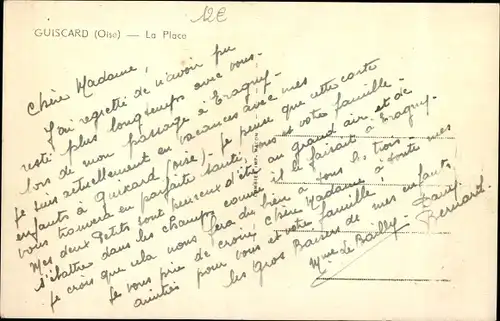 12€
GUISCARD (Oise) — La Place
Chère Madame,
J'ai regretté de n'avoir pu
resté plus longtemps avec vous.
lors de mon passage à Eragny.
Je suis actuellement en vacances avec mes
enfants à Guiscard (oise). Je pense que cette carte
vous trouvera en parfaite santé, vous et votre famille.
Mes deux Petits sont heureux d'être au grand air et de
s'ébattre dans les champs comme il le faisait à Eragny.
Je crois que cela nous fera du bien à tous les trois.
Je vous prie de croire, chère Madame à toute mes
amitiés pour vous et votre famille.
les Gros Baisers de mes enfants
Mme Le Bailly
Bernard.